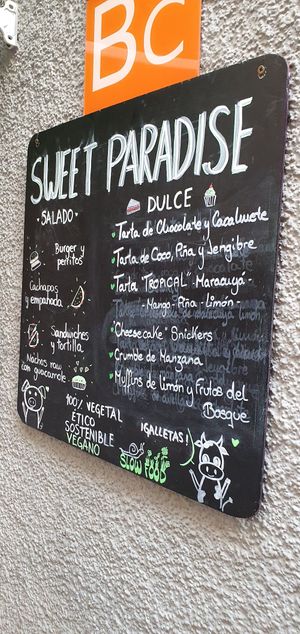 BC
SWEET PARADISE
• SALADO •
Burger y
perritos
Cachapas
y empanada
Sandwiches
y tortilla
Nachos raw
con guacamole
DULCE
Tarta de Chocolate y Cacahuete
Tarta de Coco, Piña y Jengibre
Tarta "TROPICAL" - Maracuyá -
- Mango - Piña - limón -
"Cheesecake" Snickers
Crumble de Manzana
Muffins de limón y Frutos del
Bosque
¡GALLETAS!
100% VEGETAL
ÉTICO
SOSTENIBLE
VEGANO
SLOW FOOD